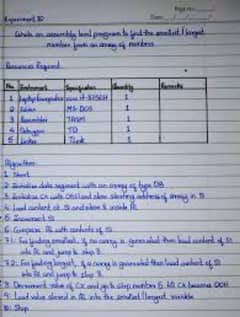 Page No.:
Date:
Experiment 10
Write an assembly level program to find the smallest / largest
number from an array of numbers
Resources Required
No. Instrument Specification Quantity Remarks
1 1
2 Editor MS-DOS 1
3 Assembler TASM 1
4 Debugger TD 1
5 Linker Tlink 1
Algorithm
1. Start
2. Initialize data segment with an array of type DB
3. Initialize CX with 05H and store starting address of array in SI
4. Load content at SI and store it inside AL
5. Increment SI
6. Compare AL with contents of SI
7.1. For finding smallest, if no carry is generated then load content of SI
into AL and jump to step 8
7.2. For finding largest, if a carry is generated then load content of SI
into AL and jump to step 8
8. Decrement value of CX and go to step number 5 till CX becomes 00H
9. Load value stored in AL into the smallest/largest variable
10. Stop